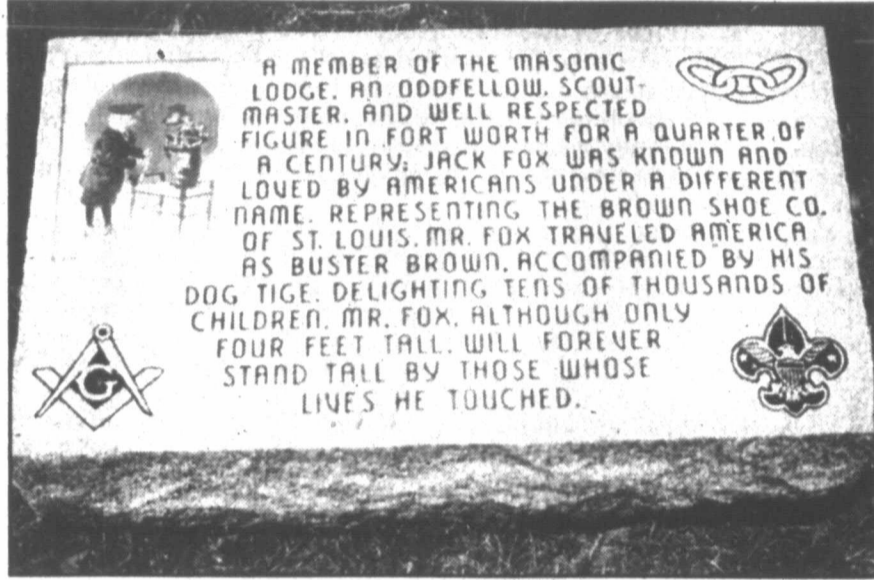 A MEMBER OF THE MASONIC
LODGE, AN ODDFELLOW, SCOUT-
MASTER, AND WELL RESPECTED
FIGURE IN FORT WORTH FOR A QUARTER OF
A CENTURY; JACK FOX WAS KNOWN AND
LOVED BY AMERICANS UNDER A DIFFERENT
NAME. REPRESENTING THE BROWN SHOE CO.
OF ST. LOUIS, MR. FOX TRAVELED AMERICA
AS BUSTER BROWN, ACCOMPANIED BY HIS
DOG TIGE, DELIGHTING TENS OF THOUSANDS OF
CHILDREN. MR. FOX, ALTHOUGH ONLY
FOUR FEET TALL, WILL FOREVER
STAND TALL BY THOSE WHOSE
LIVES HE TOUCHED.
G